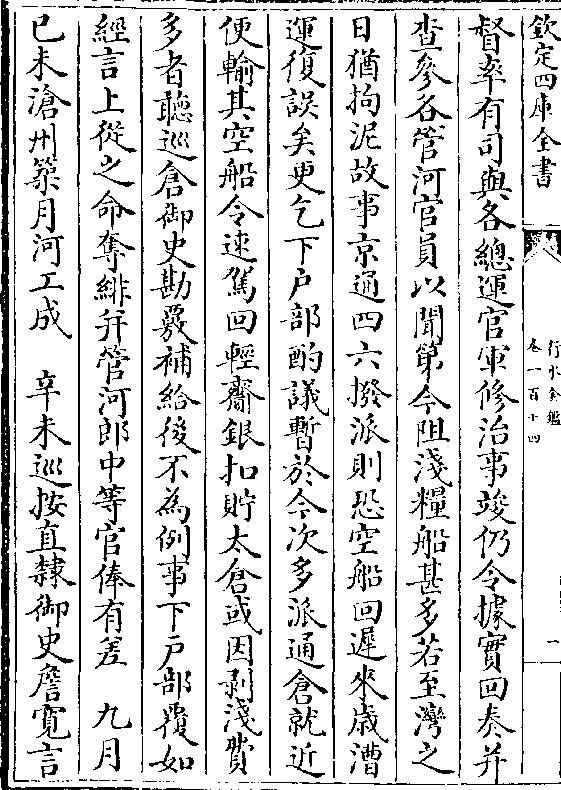 欽定四庫全書
行水金鑑
卷一百十四
一
督率有司與各總運官軍修治事竣仍令據實回奏并
查參各管河官員以聞第今阻淺糧船甚多若至灣之
日猶拘泥故事京通四六撥派則恐空船回遲來歲漕
運復誤矣更乞下戶部酌議暫於今次多派通倉就近
便輸其空船令速駕回輕齎銀扣貯太倉或因剥淺費
多者聽巡倉御史勘覈補給後不為例事下戶部覆如
經言上從之命奪緋并管河郎中等官俸有差　九月
己未滄州築月河工成　辛未巡按直隸御史詹寬言